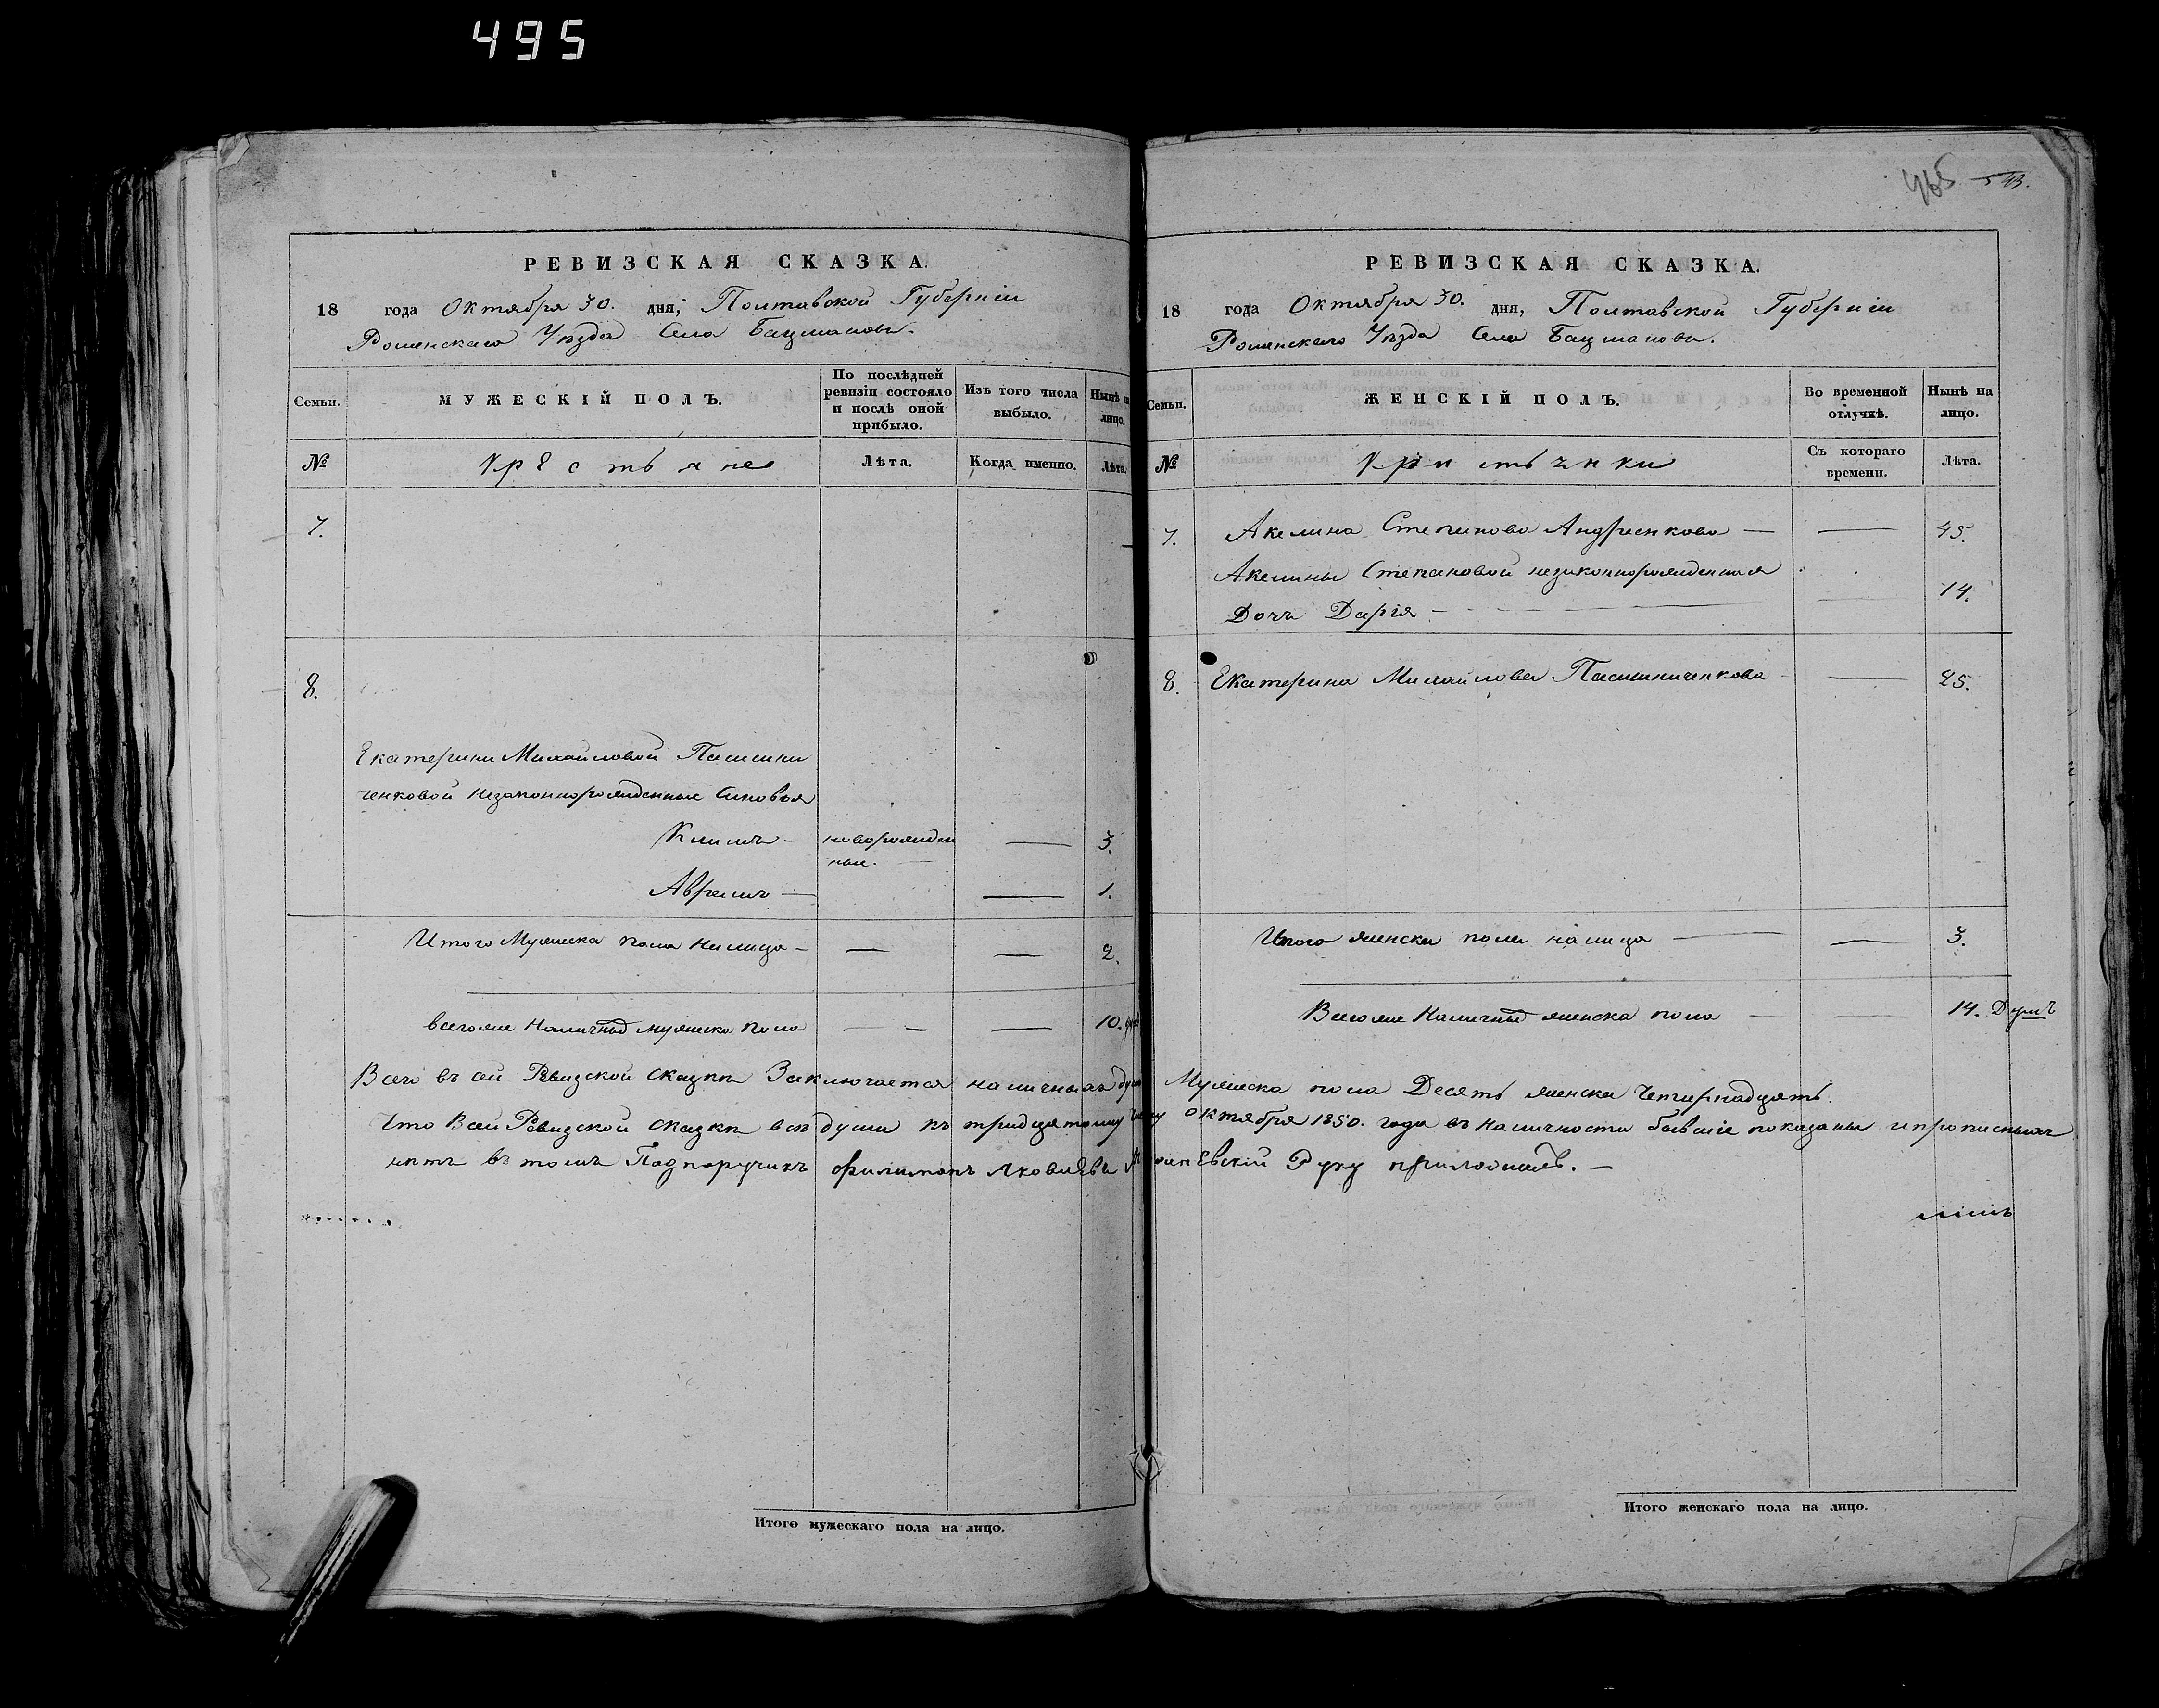 495
465 543.
РЕВИЗСКАЯ СКАЗКА.
18 года Октября 30. дня, Полтавской Губерніи
Роменскаго Уѣзда Села Бацманова.
Семьи.
МУЖЕСКІЙ ПОЛЪ.
По послѣдней ревизіи состояло и послѣ оной прибыло.
Изъ того числа выбыло.
Нынѣ на лицо.
№
Крестьяне
Лѣта.
Когда именно.
Лѣта.
7.
8.
Екатерини Михайловой Пасишни
ченковой незаконнорожденные Сыновья
Климъ — новорожден
ные. — 3.
Аврамъ — — 1.
Итого Мужеска пола налицо — — — 2.
Всегоже Наличныхъ мужеска пола — — — 10.
РЕВИЗСКАЯ СКАЗКА.
18 года Октября 30. дня, Полтавской Губерніи
Роменскаго Уѣзда Села Бацманова.
Семьи.
ЖЕНСКІЙ ПОЛЪ.
Во временной отлучкѣ.
Нынѣ на лицо.
№
Съ котораго времени.
Лѣта.
7. Акелина Степанова Андреенкова — — 45.
Акелины Степановой незаконнорожденная
Дочь Дарія — — 14.
8. Екатерина Михайлова Пасишниченкова — 25.
Итого женска пола налицо — — 3.
Всегоже Наличныхъ женска пола — — 14. Душъ
Всего въ сей Ревизской сказки Заключается наличныхъ душъ Мужеска пола Десять женска Четырнадцять.
Что Всей Ревизской сказки всѣ души къ тридцятому числу октября 1850. года въ наличности бывшіе показаны и прописныхъ
нѣтъ въ томъ Подпоручикъ Филимонъ Яковлевъ Руку приложилъ. —
Итого мужескаго пола на лицо.
Итого женскаго пола на лицо.